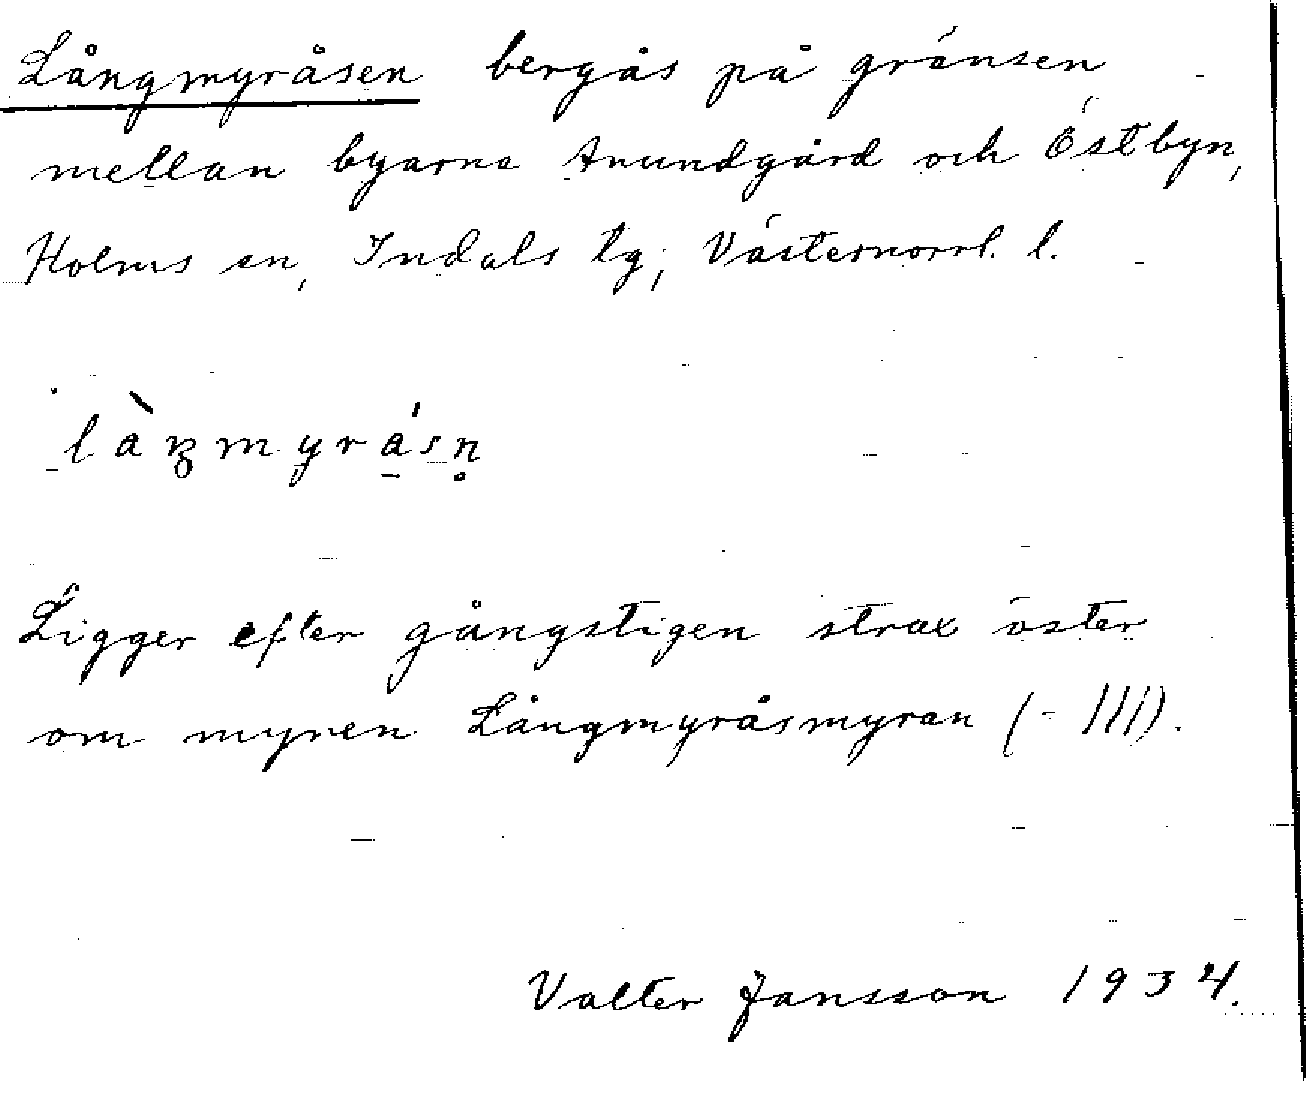 Långmyråsen bergås på gränsen
mellan byarna Anundgård och Östbyn,
Holms sn, Indals tg, Västernorrl. l.
làŋmyrásn̥
Ligger efter gångstigen strax öster
om myren Långmyråsmyran (- III).
Valter Jansson 1934.